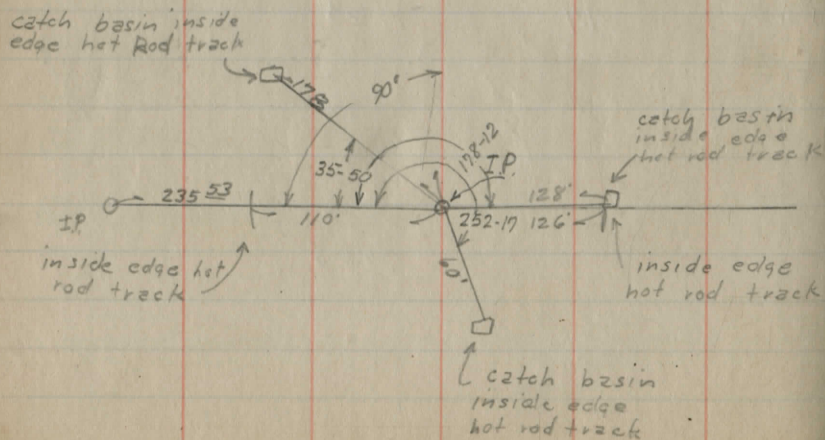 catch basin inside
edge hot Rod track
178
90°
catch basin
inside edge
hot rod track
178-12
35-50
I.P.
235 53
128'
I.P.
110'
252-17 126'
60'
inside edge hot
rod track
inside edge
hot rod track
catch basin
inside edge
hot rod track